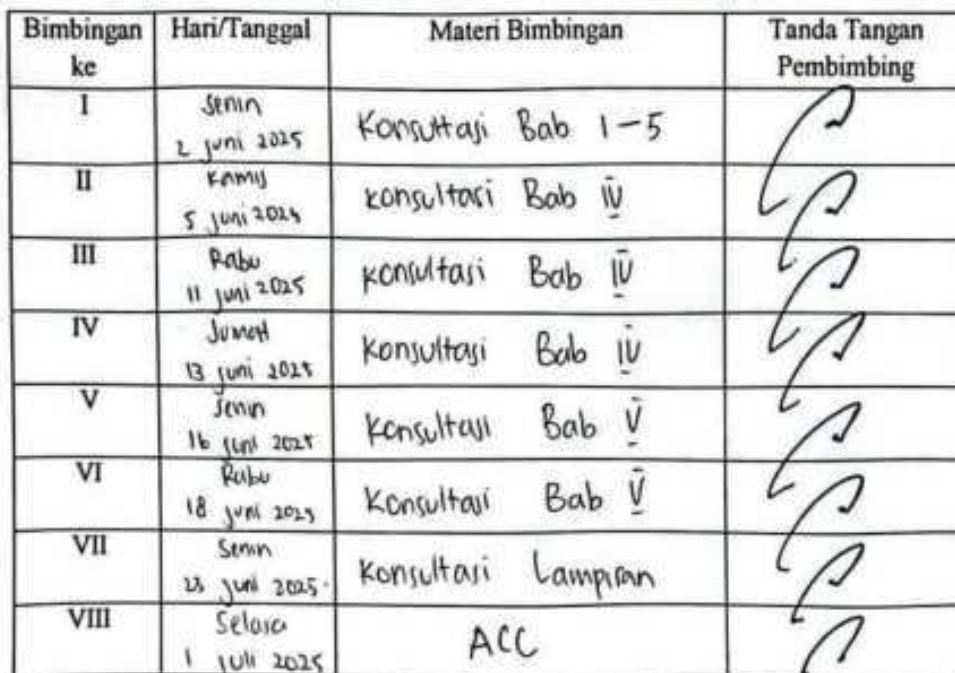 Bimbingan ke Hari/Tanggal Materi Bimbingan Tanda Tangan Pembimbing
I Senin 2 juni 2025 Konsultasi Bab 1-5
II Kamis 5 juni 2025 konsultasi Bab IV
III Rabu 11 juni 2025 konsultasi Bab IV
IV Jumat 13 juni 2025 Konsultasi Bab IV
V Senin 16 juni 2025 Konsultasi Bab V
VI Rabu 18 juni 2025 Konsultasi Bab V
VII Senin 23 juni 2025 Konsultasi Lampiran
VIII Selasa 1 juli 2025 ACC